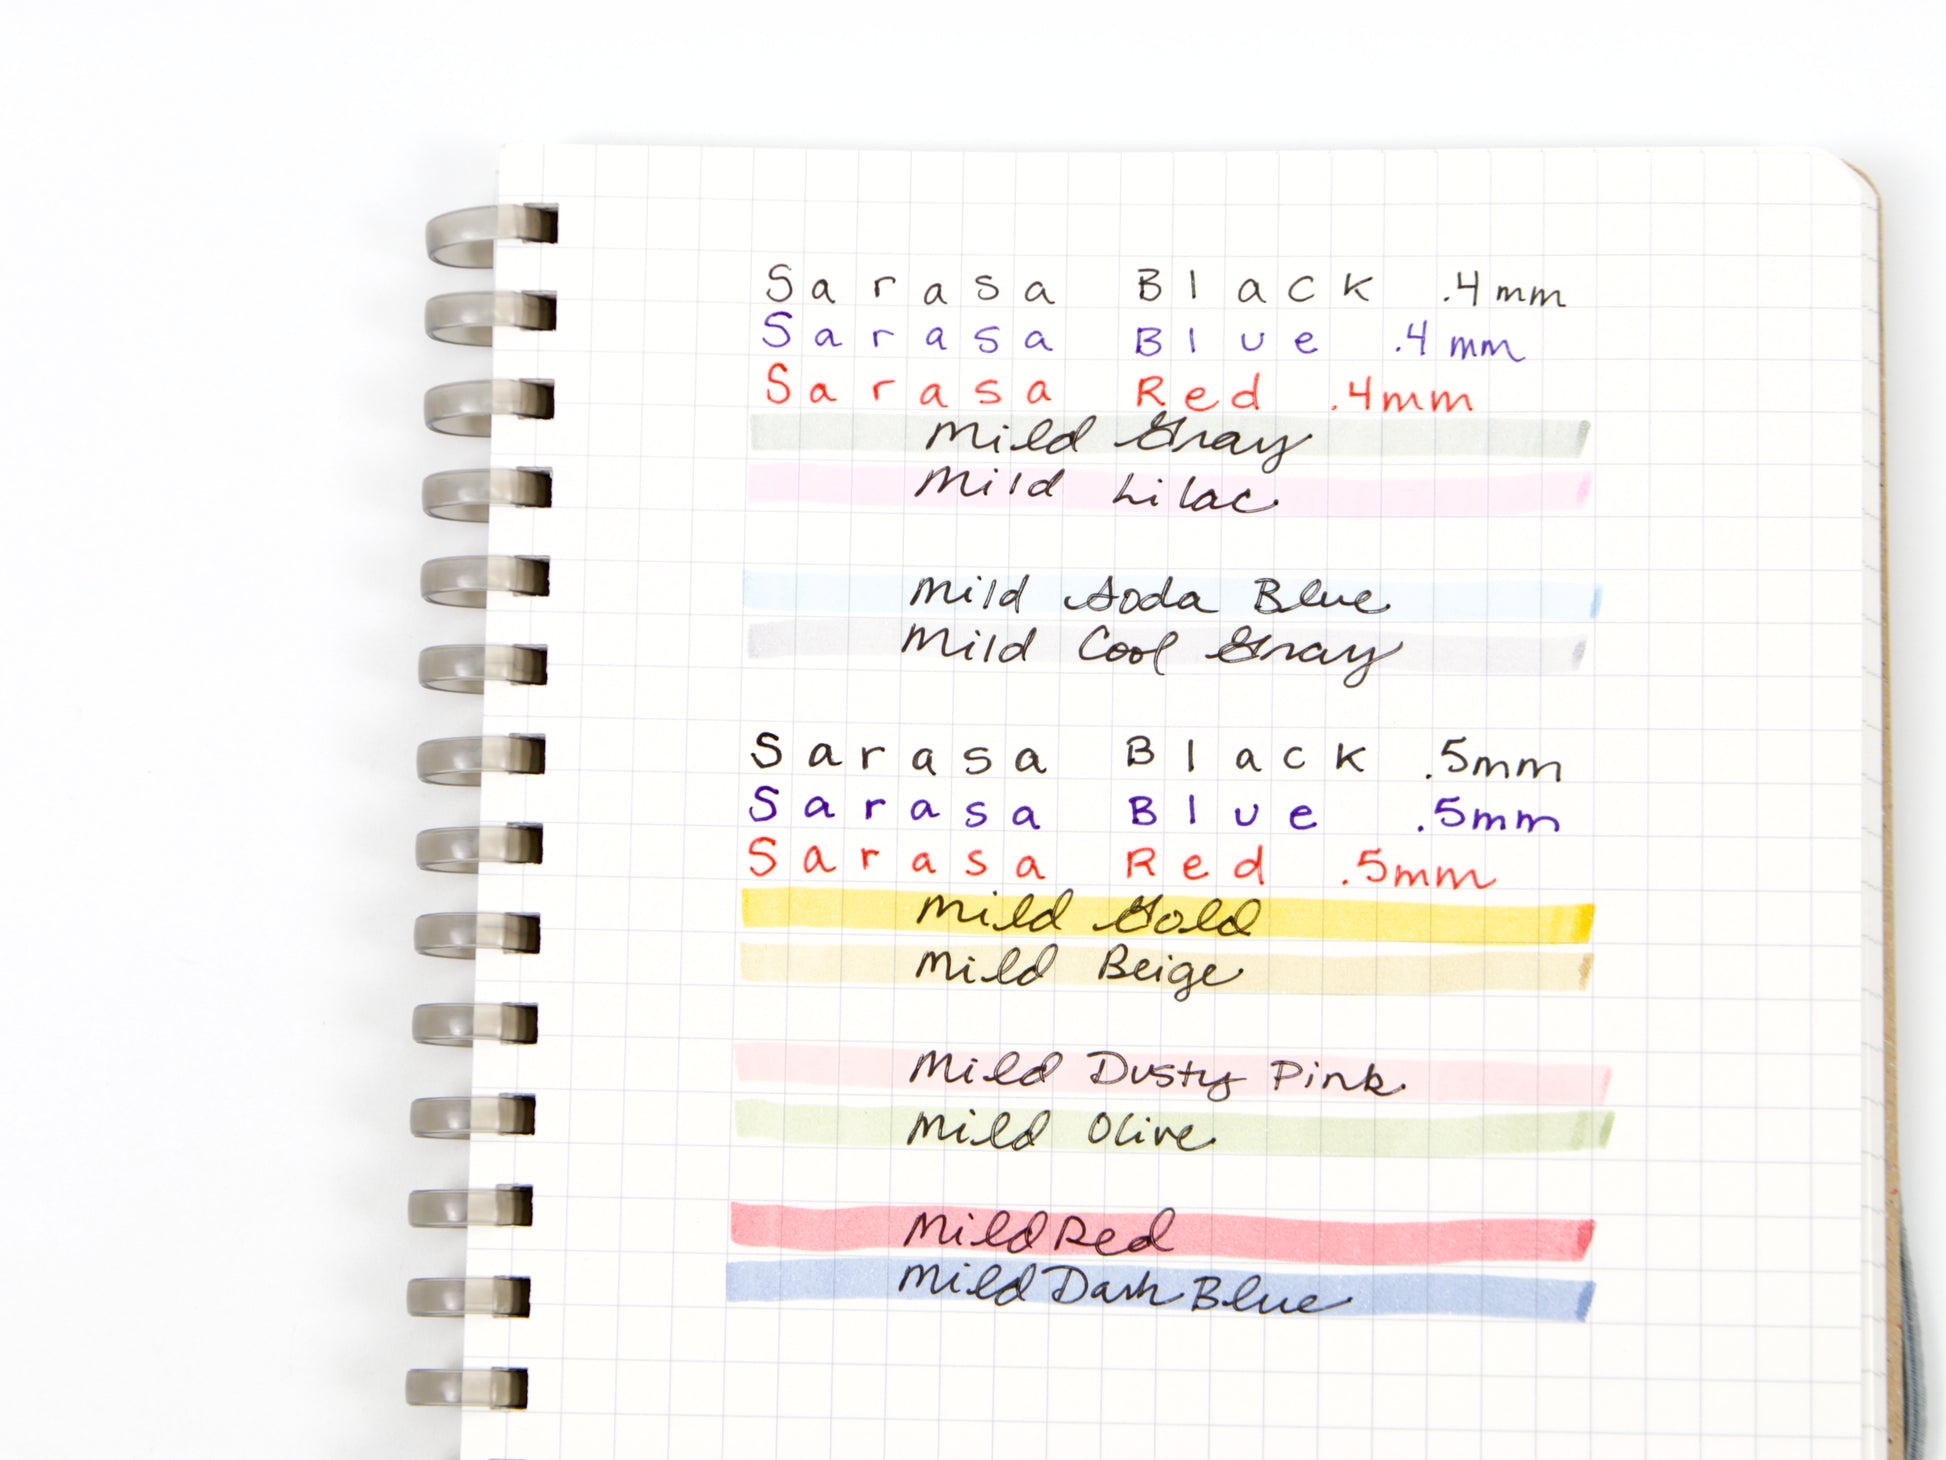 Sarasa Black .4mm
Sarasa Blue .4mm
Sarasa Red .4mm
Mild Gray
Mild Lilac
Mild Soda Blue
Mild Cool Gray
Sarasa Black .5mm
Sarasa Blue .5mm
Sarasa Red .5mm
Mild Gold
Mild Beige
Mild Dusty Pink
Mild Olive
Mild Red
Mild Dark Blue